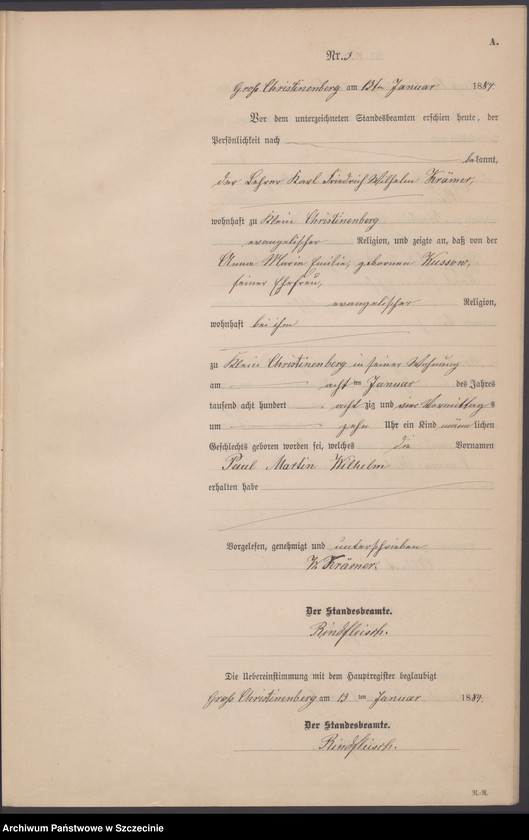 A.
Nr. 3.
Groß Christinenberg am 13ten Januar 1884.
Vor dem unterzeichneten Standesbeamten erschien heute, der
Persönlichkeit nach
bekannt,
der Lehrer Karl Friedrich Wilhelm Krämer,
wohnhaft zu Klein Christinenberg
evangelischer Religion, und zeigte an, daß von der
Anna Marie Emilie, geborenen Kussow,
seiner Ehefrau,
evangelischer Religion,
wohnhaft bei ihm
zu Klein Christinenberg in seiner Wohnung
am acht ten Januar des Jahres
tausend acht hundert acht zig und vier Vormittags
um zehn Uhr ein Kind männlichen
Geschlechts geboren worden sei, welches die Vornamen
Paul Martin Wilhelm
erhalten habe
Vorgelesen, genehmigt und unterschrieben
W. Krämer.
Der Standesbeamte.
Rindfleisch.
Die Uebereinstimmung mit dem Hauptregister beglaubigt
Groß Christinenberg am 13 ten Januar 1884.
Der Standesbeamte.
Rindfleisch.
Archiwum Państwowe w Szczecinie